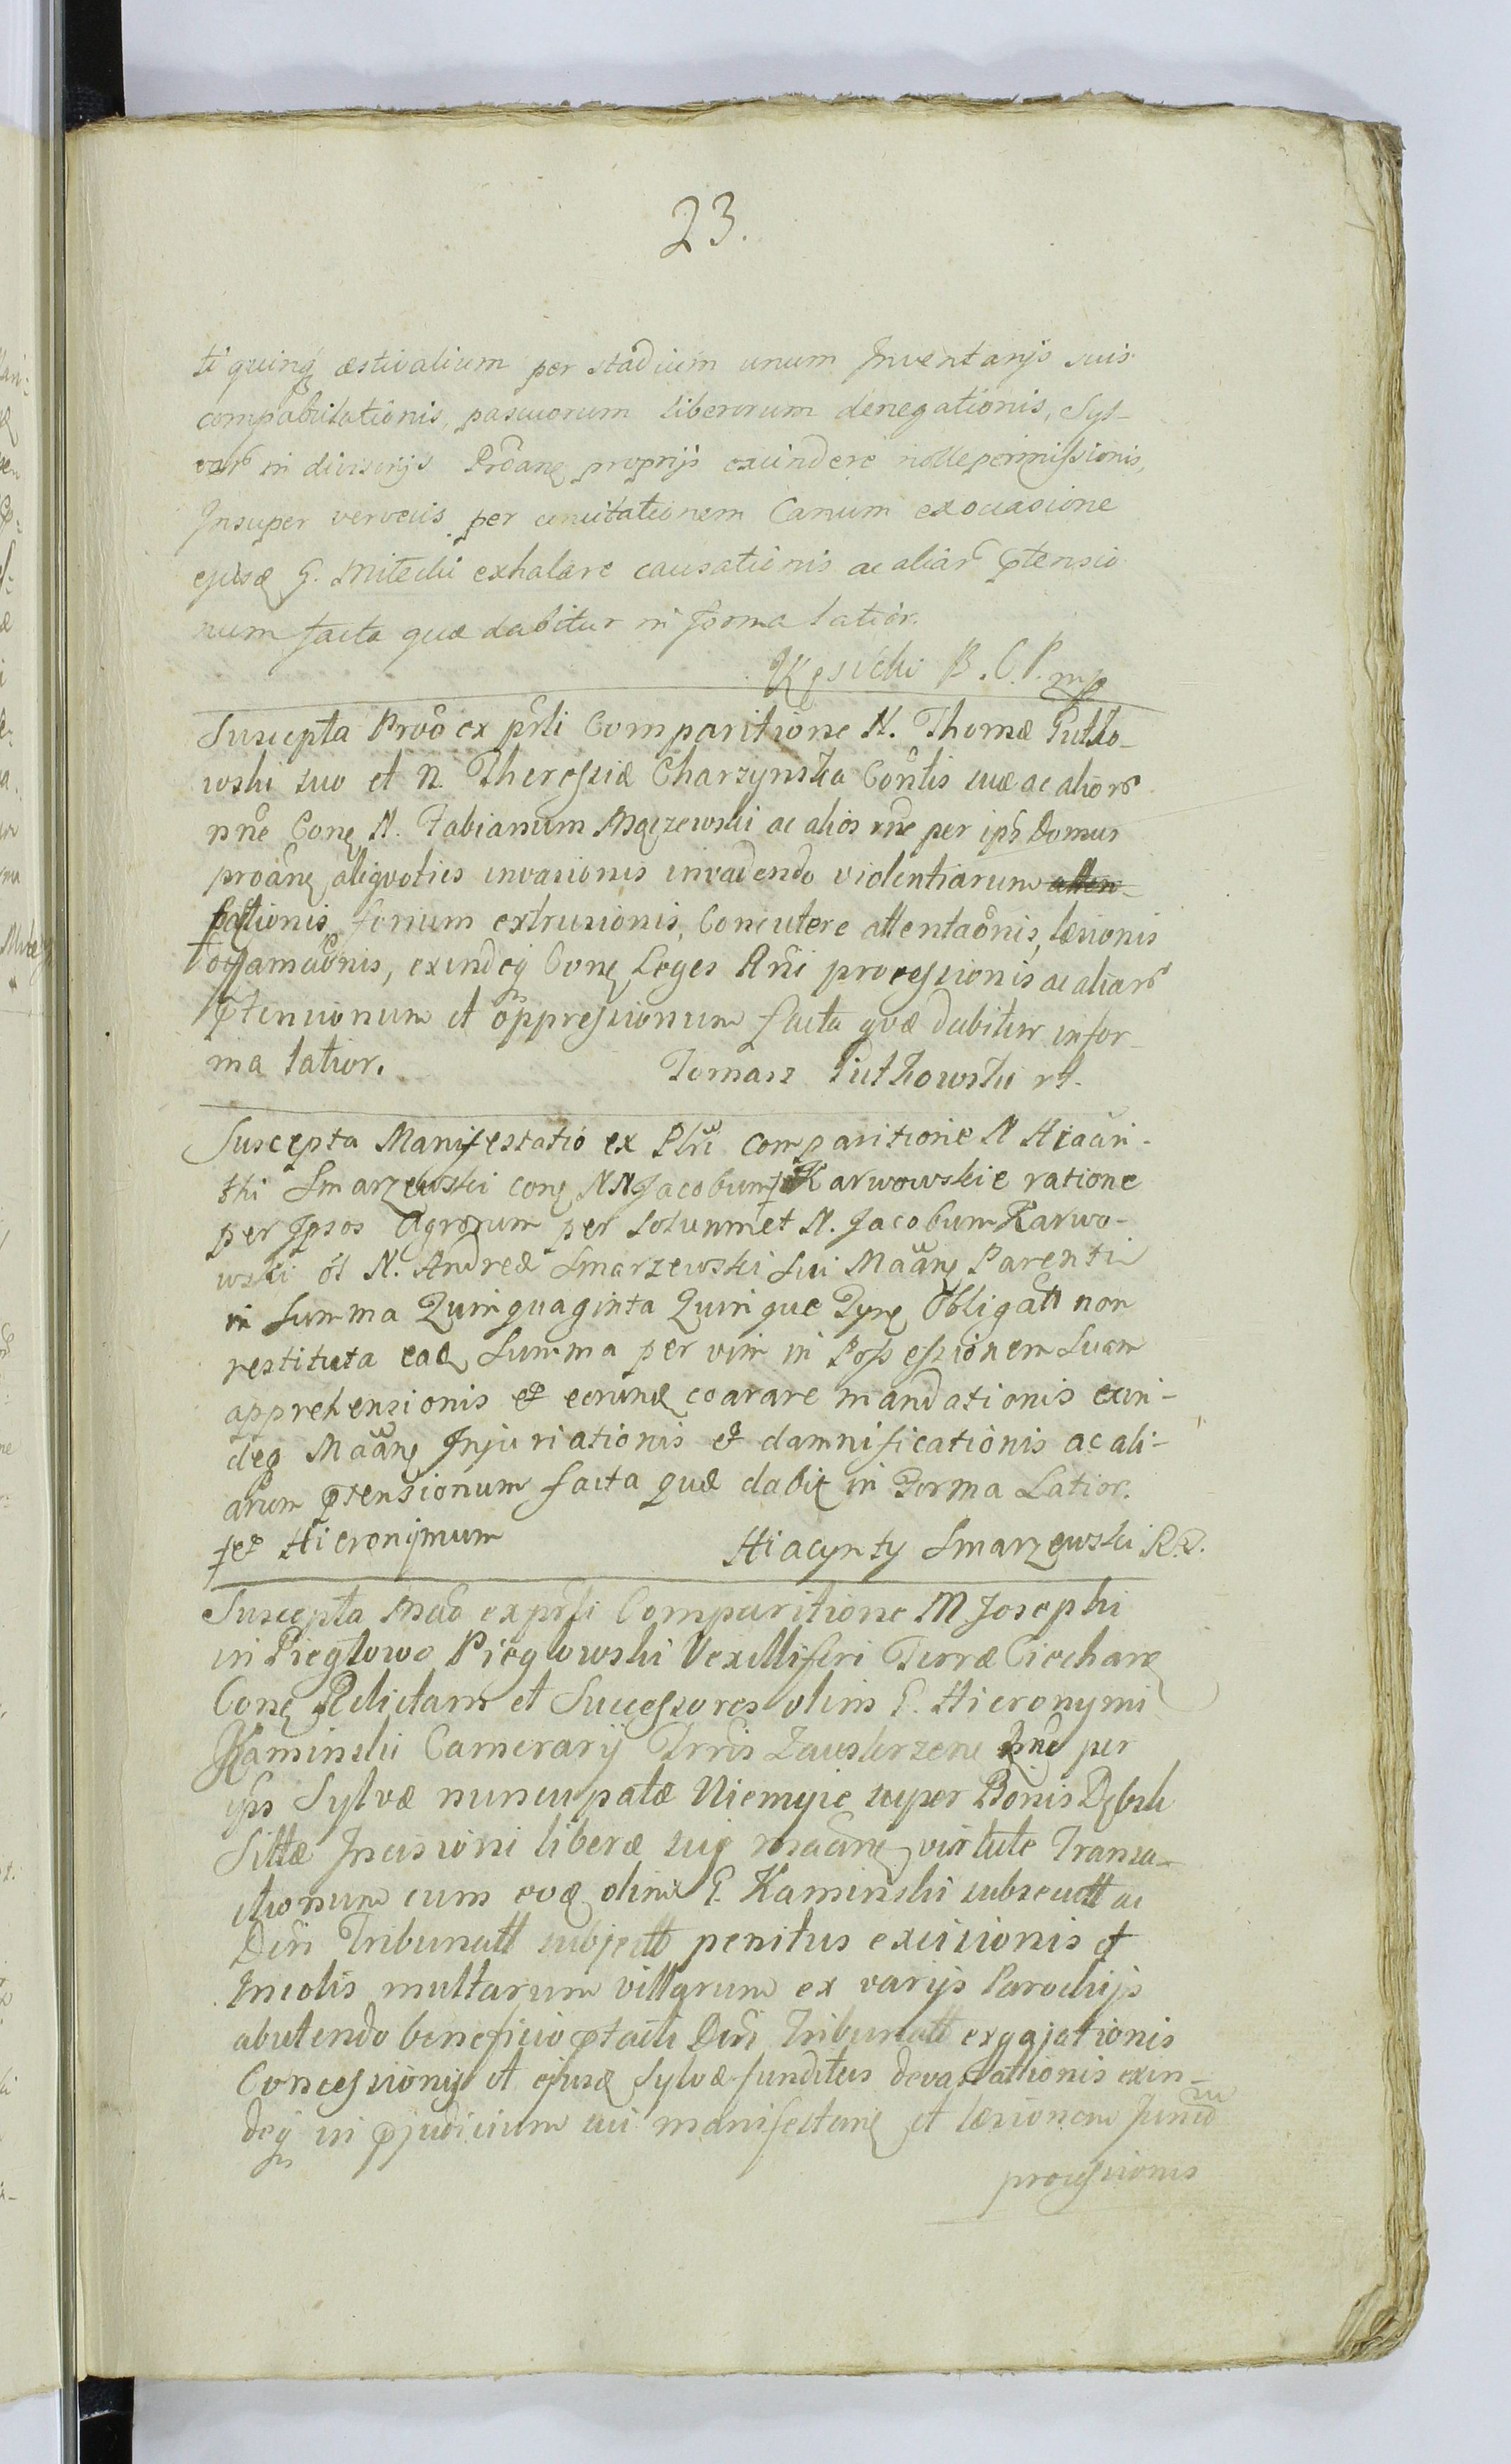 23.
ti quinq æstivalium per stadium unum Inventarijs suis
compabulationis, pascuorum liberorum denegationis, Syl-
varꝝ in divisorijs Proãne proprijs excindere nolle permissionis,
Insuper vervecis per concitationem Canum ex occasione
ejusd G. Mitecki exhalare causationis ac aliarꝝ ptensio
num facta quæ dabitur in forma latior.
Kęsicki B. C. P. mp
Suscepta Prõo ex prsti Comparitione N. Thomæ Putko-
wski suo et N. Theressiæ Charzynska Contlis suæ ac aliorꝝ
nne Cone N. Fabianum Mączewski ac alios rne per ipsos Domus
proãne aliqvoties invasionis invadendo violentiarum atten-
pationis, forium extrusionis, Concutere attentaõnis, læsionis
diffamaõnis, exindeq Cone Leges Rni processionis ac aliarꝝ
ptensionum et oppressionum facta qvæ dabitur in for-
ma latior.
Tomasz Putkowski rt.
Suscepta Manifestatio ex Plsti comparitione N Hiacin-
thi Smarzewski cone NN Jacobum ‡ Karwowskie ratione
per Ipsos Agrorum per solummet N. Jacobum Karwo-
wski ol N. Andreæ Smarzewski Sui Maãne Parenti
in Summa Quinquaginta Quinque Tyne Obligatt non
restituta ead Summa per vim in Possessionem Suam
apprehensionis et eorund coarare mandationis exin-
deq Maãne Injuriationis et damnificationis ac ali-
arum ptensionum facta quæ dabit in Forma Latior.
‡ et Hieronymum
Hiacynty Smarzewski R.R.
Suscepta Maõ ex prsti Comparitione M Josephi
in Pieglowo Pieglowski Vexilliferi Terræ Ciechane
Cone Relictam et Successores olim G. Hieronymi
Kaminski Camerarij Trris Zawskrzene rne per
ipsos Sylvæ nuncupatæ Niemyie super Bonis Dębsk
Sittæ Incisioni liberæ sui maãne virtute Transa-
ctionum cum eod olim G. Kaminski subsecutt ac
Dčri Tribunatt subjectt penitus excisionis et
Incolis multarum villarum ex varijs Parochijs
abutendo beneficio ptacti Dčri Tribunatt exgajationis
Concessionis et ejusd Sylvæ funditus devastationis exin-
deq in pjudicium sui manifestane et læsionem Juriū
processionis